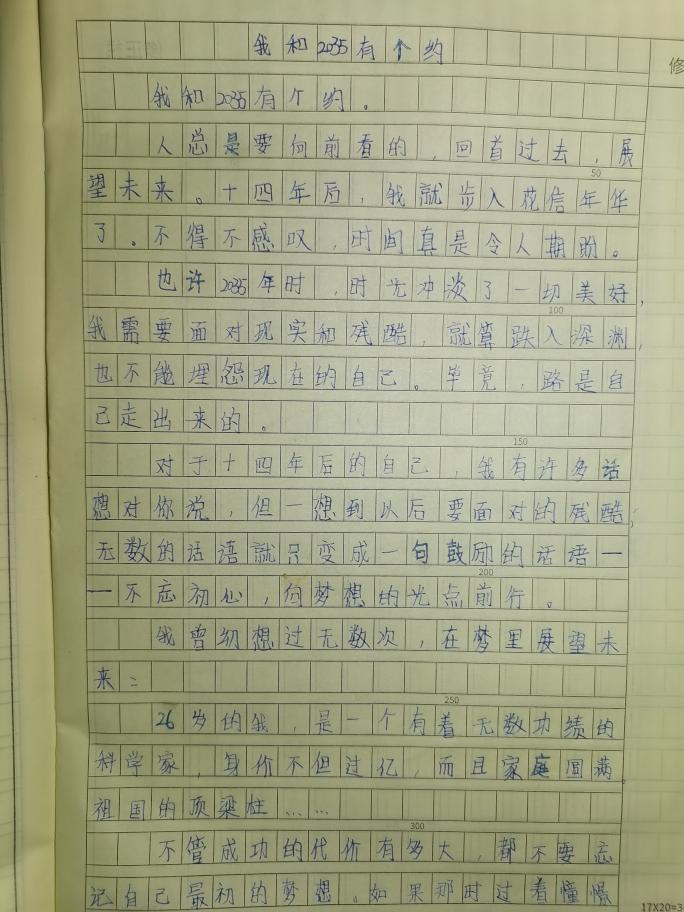 我和2035有个约
我和2035有个约。
人总是要向前看的，回首过去，展
50
望未来。十四年后，我就步入花信年华
了。不得不感叹，时间真是令人期盼。
也许2035年时，时光冲淡了一切美好，
100
我需要面对现实和残酷，就算跌入深渊，
也不能埋怨现在的自己。毕竟，路是自
己走出来的。
150
对于十四年后的自己，我有许多话
想对你说，但一想到以后要面对的残酷，
无数的话语就只变成一句鼓励的话语—
200
—不忘初心，向梦想的光点前行。
我曾幻想过无数次，在梦里展望未
来：
250
26岁的我，是一个有着无数功绩的
科学家，身价不但过亿，而且家庭圆满。
祖国的顶梁柱……
300
不管成功的代价有多大，都不要忘
记自己最初的梦想。如果那时过着憧憬
修
17X20=3